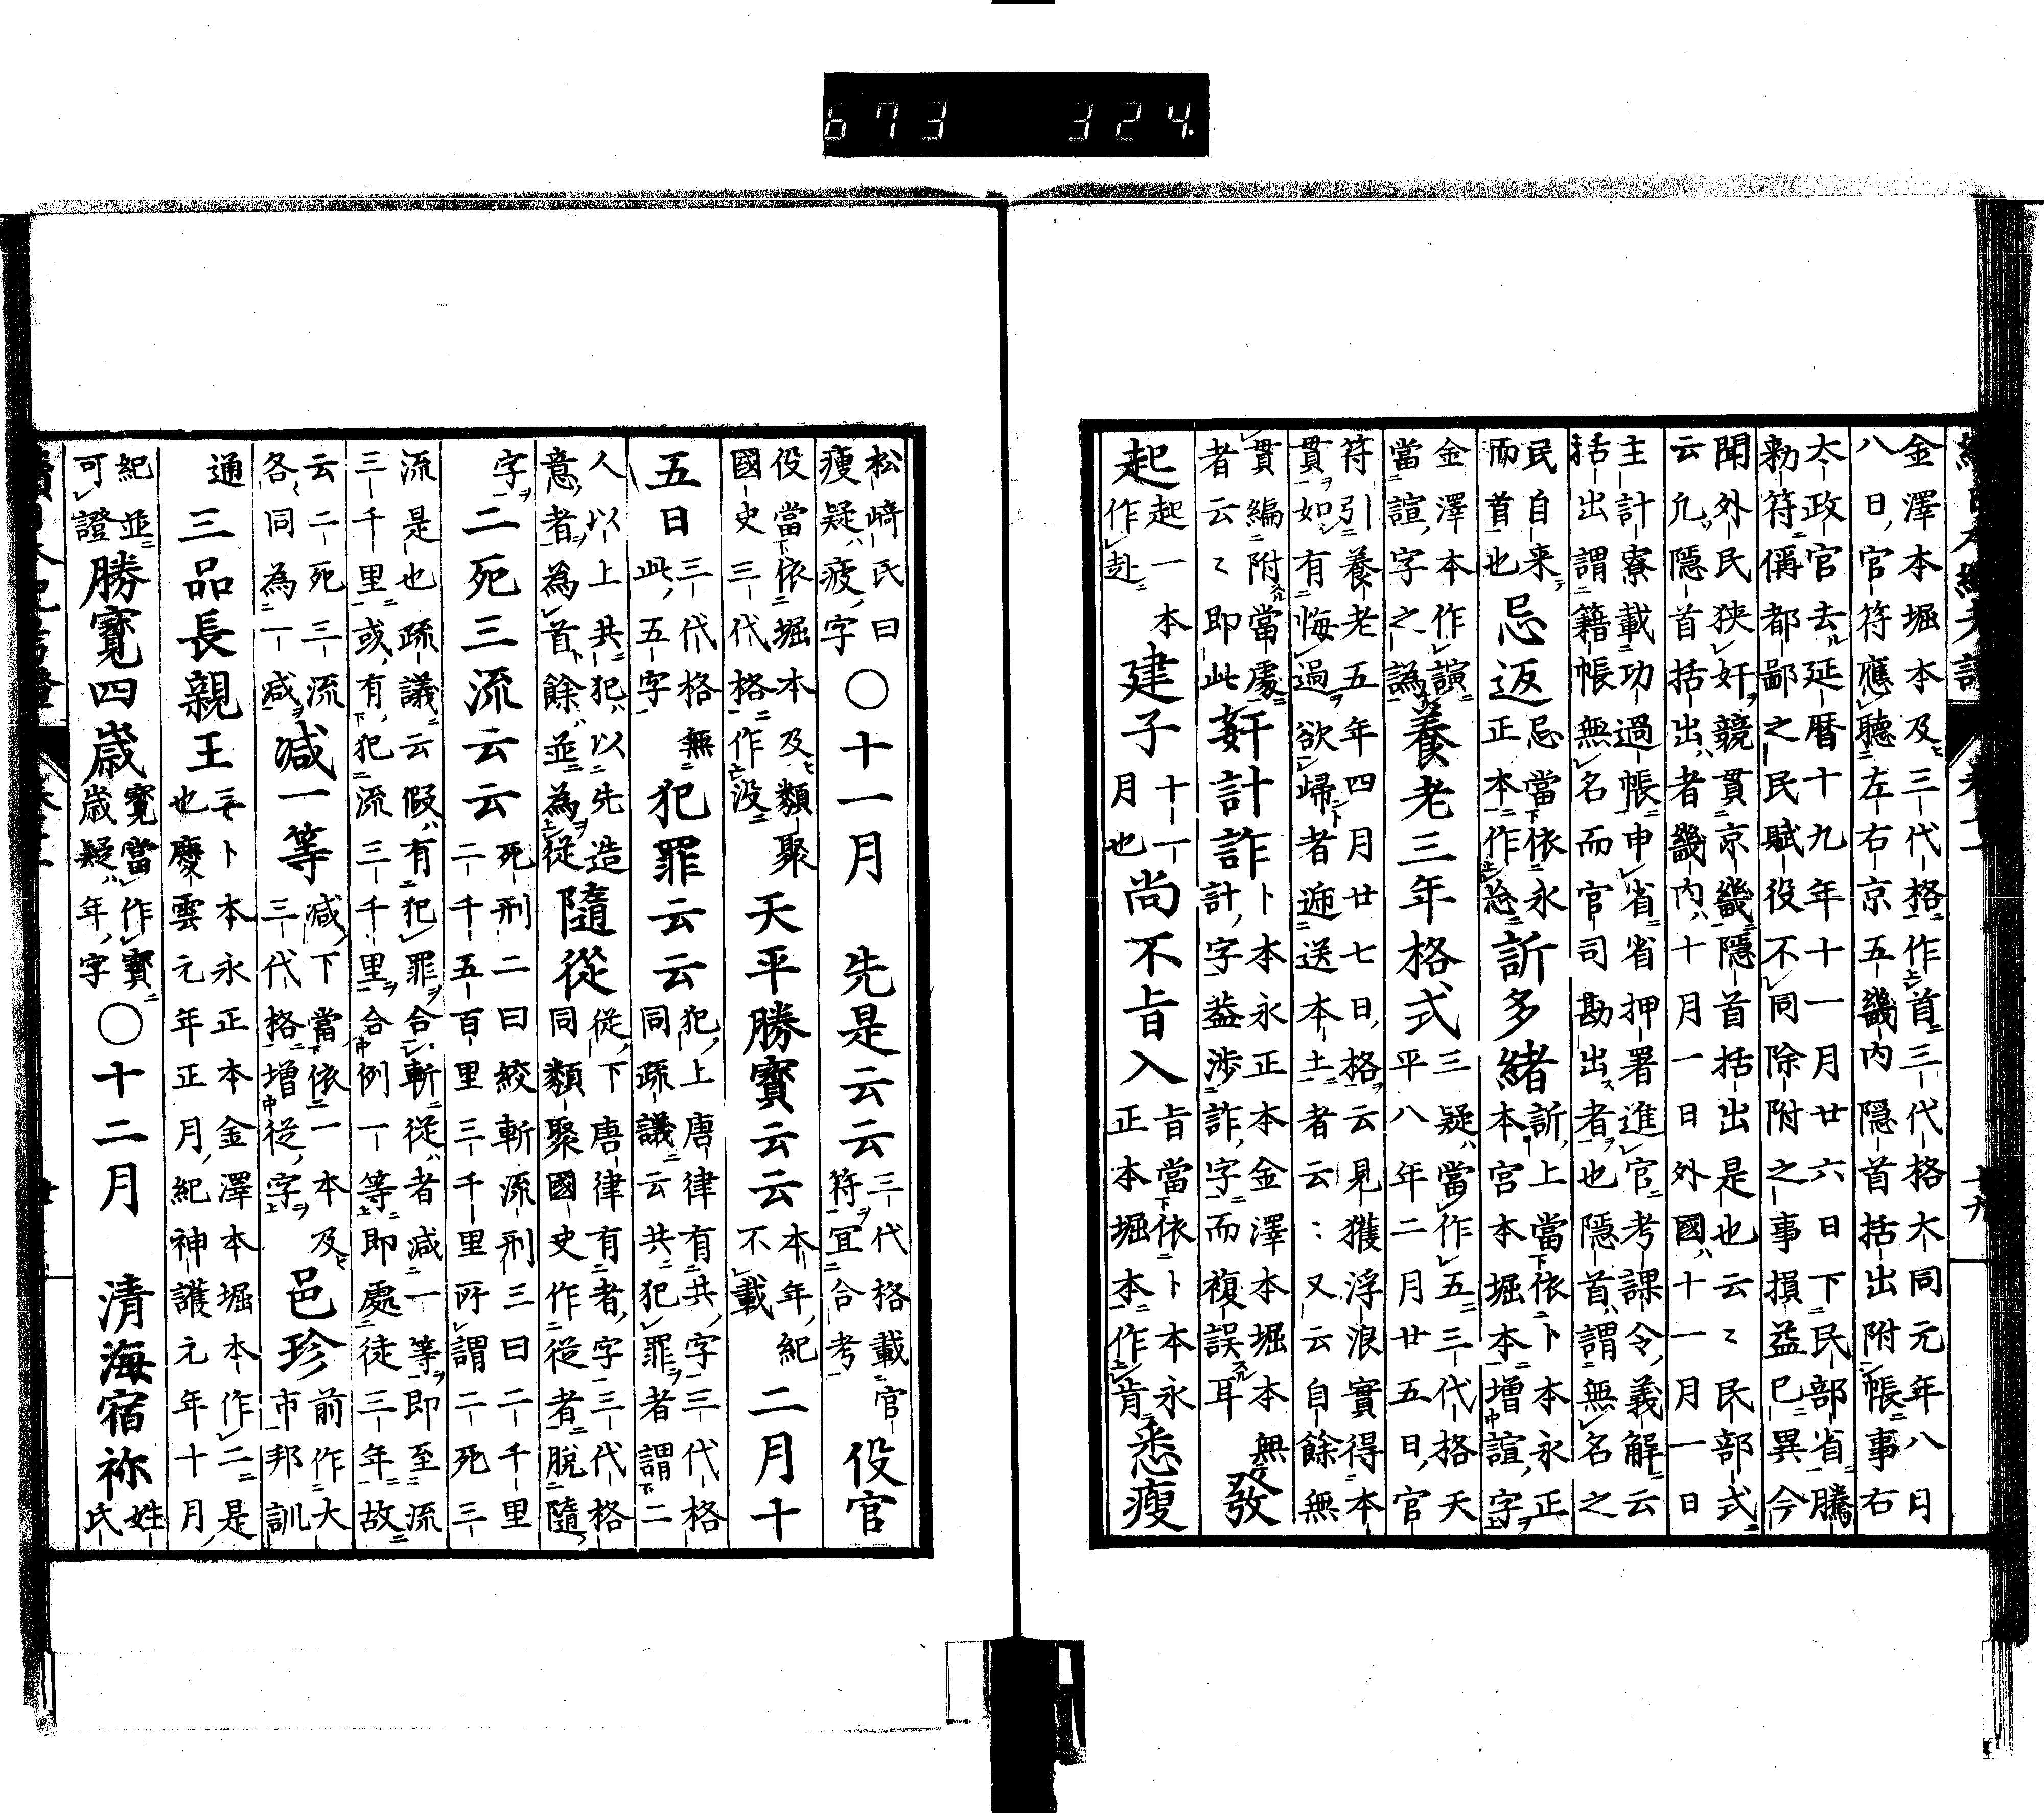 673 324.
金澤本堀本及三代格作首三代格大同元年八月
八日官符應聽左右京五畿内隠首括出附帳事右
大政官去延暦十九年十一月廿六日下民部省騰
勅符偁都鄙之民賦役不同除附之事損益已異今
聞外民狭奸競貫京畿隠首括出是也云々民部式
云凢隠首括出者畿内十月一日外國十一月一日
主計寮載功過帳申省省押署進官考課令義解云
括出謂籍帳無名而官司勘出者也隠首謂無名之
民自来
而首也
忌返
忌當依永
正本作怱
訴多緒
訴上當依卜本永正
本宮本堀本增諠字
金澤本作諠
當諠字之譌
養老三年格式
三疑當作五三代格天
平八年二月廿五日官
符引養老五年四月廿七日格云見獲浮浪實得本
貫如有悔過欲歸者逓送本土者云云又云自餘無
貫編附當處
者云々即此
姧計詐
卜本永正本金澤本堀本無
計字益渉詐字而複誤耳
發
起
起一本
作赴
建子
十一
月也
尚不旨入
旨當依卜本永
正本堀本作肯
悉瘦
松﨑氏曰
瘦疑疲字
〇十一月
先是云云
三代格載官
符宜合考
役官
役當依堀本及類聚
國史三代格作没
天平勝寶云云
本年紀
不載
二月十
五日
三代格無
此五字
犯罪云云
犯上唐律有共字三代格
同疏議云共犯罪者謂二
人以上共犯以先造
意者為首餘並為從
隨從
從下唐律有者字三代格
同類聚國史作從者脫隨
字
二死三流云云
死刑二曰絞斬流刑三曰二千里
二千五百里三千里所謂二死三
流是也疏議云假有犯罪合斬從者減一等即至流
三千里或有犯流三千里合例一等即處徒三年故
云二死三流
各同為一減
減一等
減下當依一本及
三代格增從字
邑珍
前作大
市邦訓
通
三品長親王
三卜本永正本金澤本堀本作二是
也慶雲元年正月紀神護元年十月
紀並
可證
勝寛四歳
寛當作寳
歳疑年字
〇十二月
清海宿祢
姓
氏